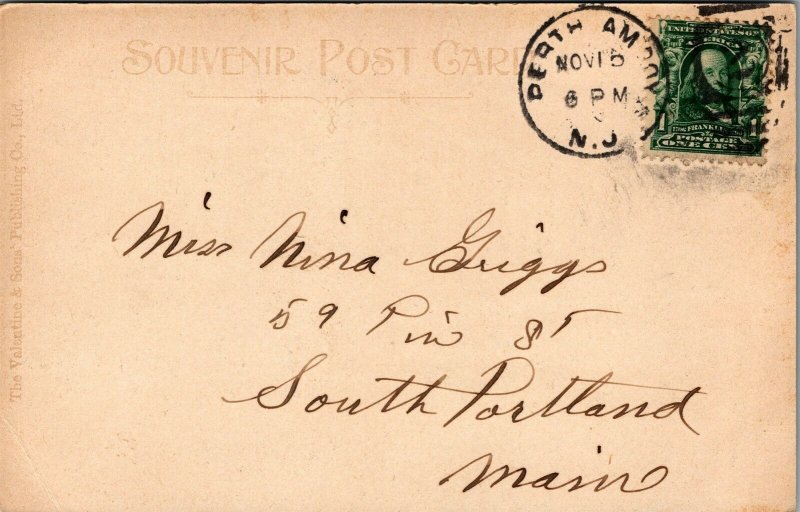 SOUVENIR POST CARD
PERTH AMBOY
NOV 15
6 PM
N.J.
UNITED STATES OF
AMERICA
FRANKLIN
POSTAGE
ONE CENT
The Valentine & Sons Publishing Co., Ltd.
Miss Nina Griggs
59 Pin St
South Portland
Main